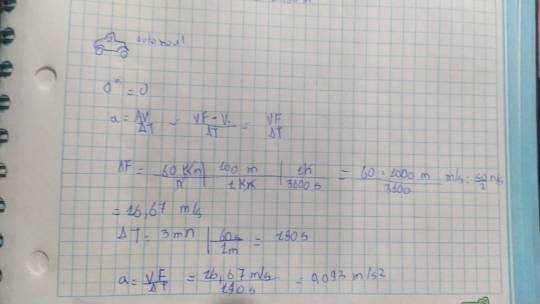 automovil
= 0
a = ΔV/ΔT = VF - V./ΔT = VF/ΔT
ΔF = 60 Km/h | 100 m/1 Km | 1h/3600 s = 60 · 1000 m/3600 m/s = 50/3 m/s
= 16,67 m/s
ΔT = 3 mn | 60s/1m = 180 s
a = VF/ΔT = 16,67 m/s/180 s = 0,093 m/s²